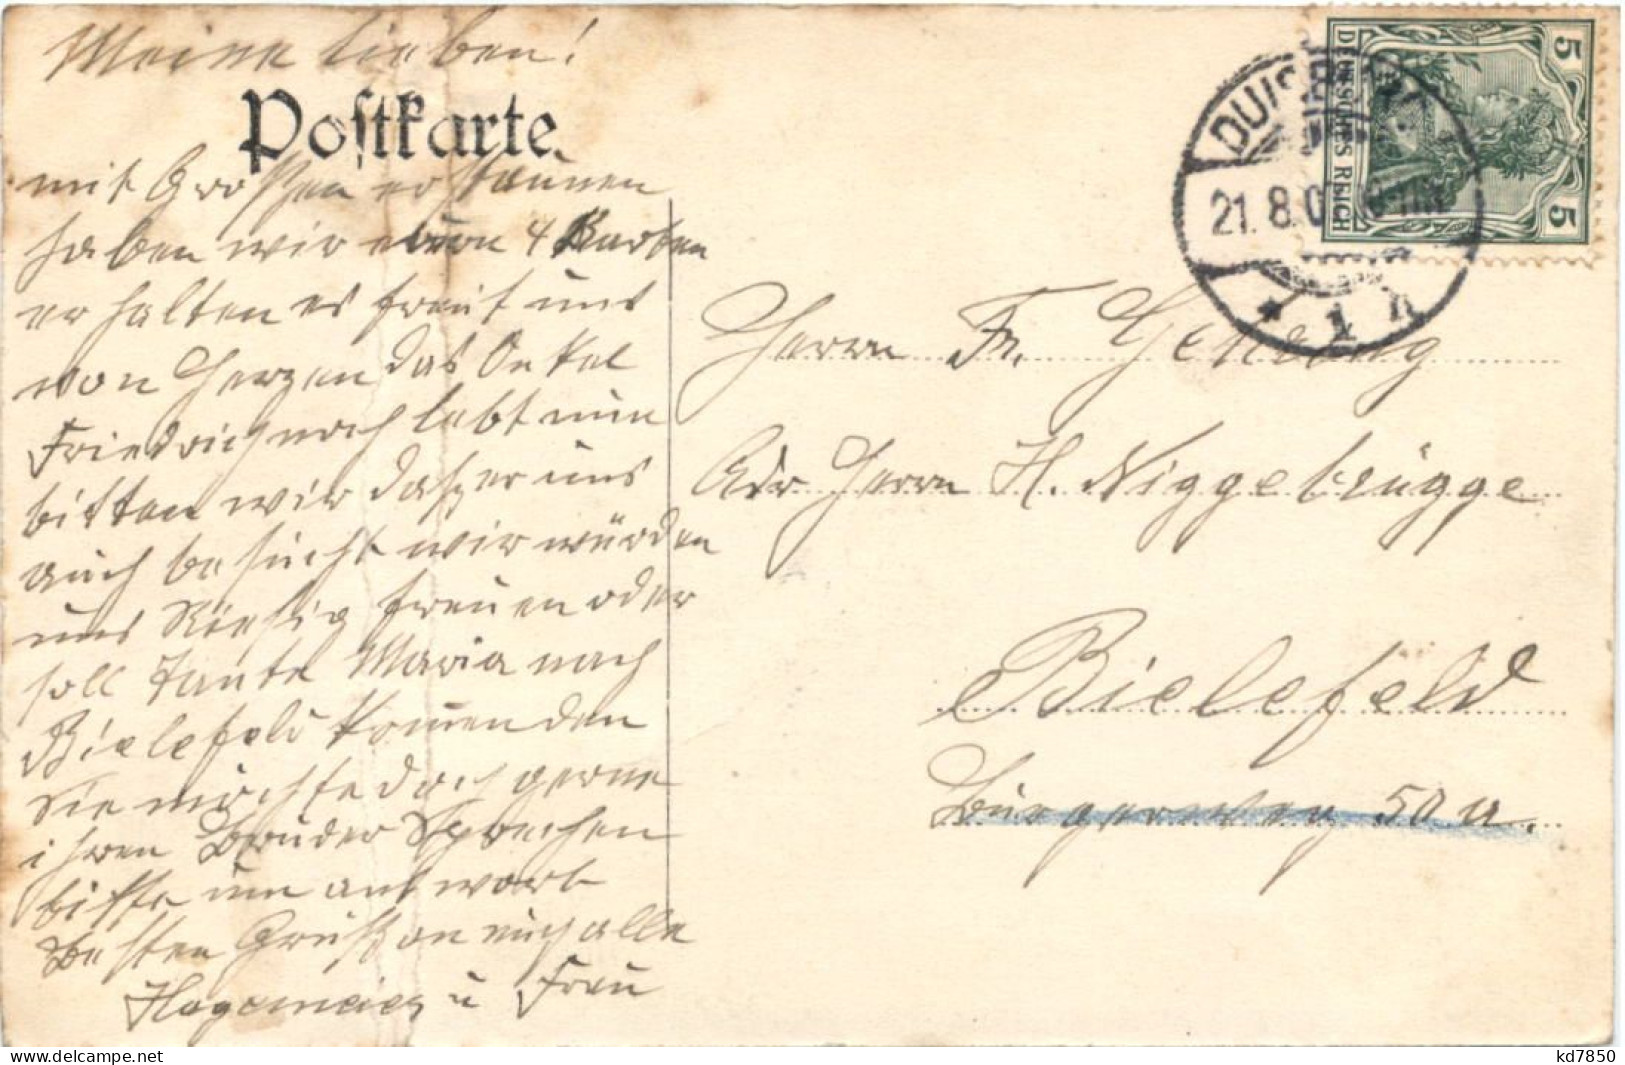 Meine lieben!
Postkarte.
mit Großen erstaunen
haben wir euren 4 Karten
erhalten es freut uns
von Herzen das Onkel
Friedrich noch lebt nun
bitten wir daß er uns
auch besucht wir würden
uns Riesig freuen oder
soll Tante Maria nach
Bielefeld komen den
Sie möchte doch gerne
ihren Bruder Sprechen
bitte um antwort
Besten Gruß an euch alle
Hagemeier u Frau
DEUTSCHES REICH
5
5
DUISBURG
21. 8. 0
* 1 n
Herrn Fr.
Adr Herrn H. Niggebrügge
Bielefeld
Bürgerweg 50 a.
kd7850
www.delcampe.net